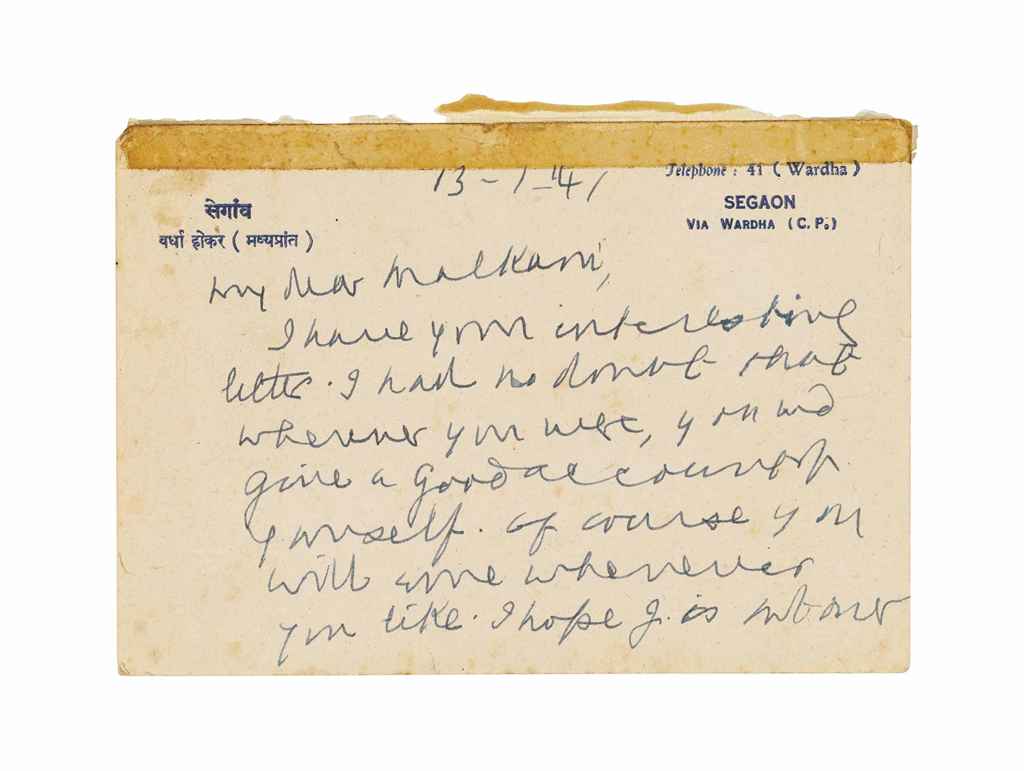 Telephone : 41 ( Wardha )
13-1-41
सेगांव
SEGAON
वर्धा होकर ( मध्यप्रांत )
VIA WARDHA (C. P.)
My dear Malkani,
I have your interesting
letter. I had no doubt that
wherever you were, you wd
give a good account of
yourself. Of course you
will come whenever
you like. I hope J. is